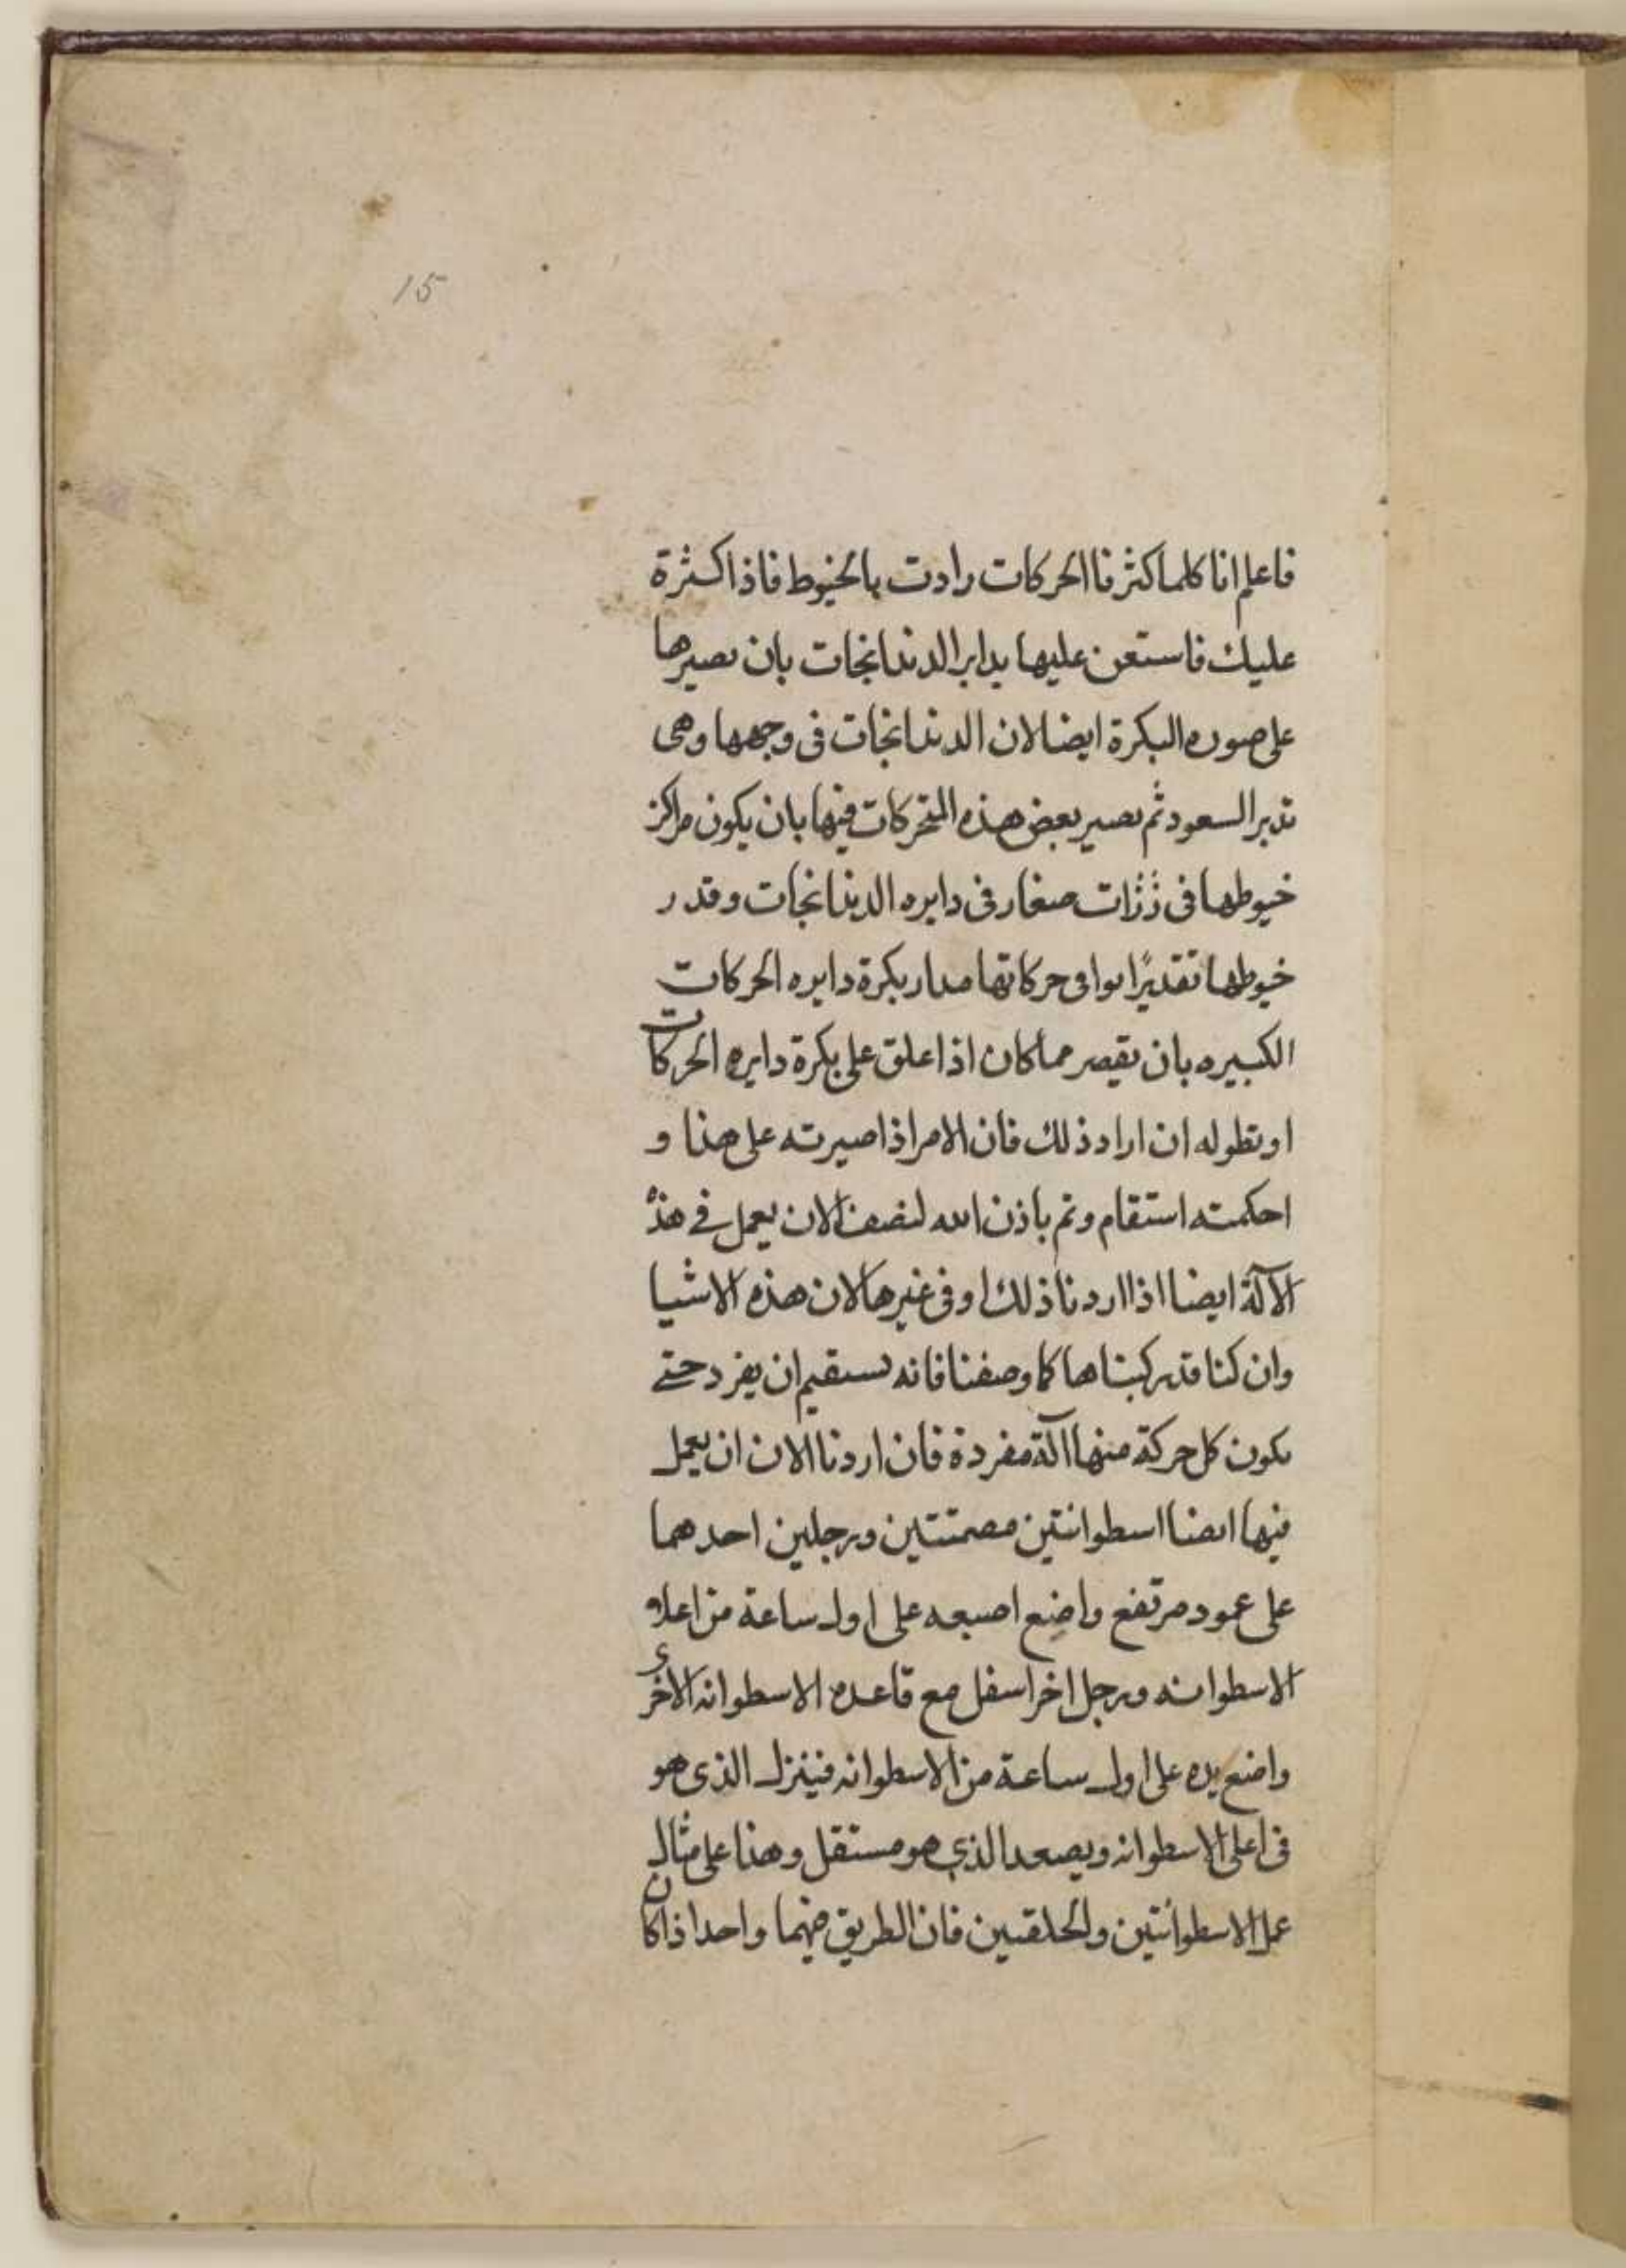 15
فاعلم انا كلما كثرنا الحركات رادت بالخيوط فاذا كثرة
عليك فاستعن عليها بداير الدندانجات بان نصيرها
على صوره البكرة ايضا لان الدندانجات فى وجهها وهى
تدبر السعود ثم نصير بعض هذه المتحركات فيها بان يكون مراكز
خيوطها فى زرات صغار فى دايره الدندانجات وقدر
خيوطها تقديرًا يوافى حركاتها مدار بكرة دايره الحركات
الكبيره بان يقصر مما كان اذا علق على بكرة دايره الحركات
او تطوله ان اراد ذلك فان الامر اذا صيرته على هذا و
احكمته استقام وتم باذن الله لنصف الان يعمل فى هذه
الآلة ايضا اذا اردنا ذلك او فى غيرها لان هذه الاشيا
وان كنا قد ركبناها كما وصفنا فانه يستقيم ان يفرد حتى
يكون كل حركة منها آلة مفردة فان اردنا الان ان يعمل
فيها ايضا اسطوانتين مصمتتين ورجلين احدهما
على عمود مرتفع واضع اصبعه على اول ساعة من اعلا
الاسطوانه ورجل اخر اسفل مع قاعده الاسطوانه الاخرى
واضع يده على اول ساعة من الاسطوانه فينزل الذى هو
فى اعلى الاسطوانه ويصعد الذى هو مستقل وهذا على مثال
عمل الاسطوانتين والحلقتين فان الطريق فيهما واحد اذ كان